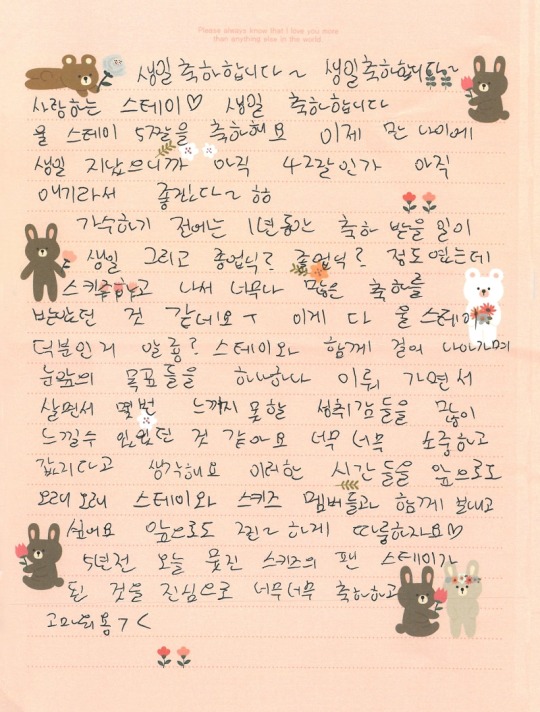 Please always know that I love you more
than anything else in the world.
생일 축하합니다~ 생일 축하합니다~
사랑하는 스테이♡ 생일 축하합니다
울 스테이 5짤을 축하해요 이제 만 나이에
생일 지났으니까 아직 4짤인가 아직
애기라서 좋겠다~ ㅎㅎ
가수하기 전에는 1년동안 축하 받을 일이
생일 그리고 졸업식? 졸업식? 정도였는데
스키즈하고 나서 너무나 많은 축하를
받았던 것 같네요ㅜ 이게 다 울 스테이
덕분인 거 알죵? 스테이와 함께 걸어 나아가며
눈앞의 목표들을 하나하나 이뤄 가면서
살면서 몇번 느끼지 못할 성취감들을 많이
느낄수 있었던 것 같아요 너무 너무 소중하고
값지다고 생각해요 이러한 시간들을 앞으로도
오래 오래 스테이와 스키즈 멤버들과 함께 보내고
싶어요 앞으로도 그린~하게 따릉하자요♡
5년전 오늘 멋진 스키즈의 팬 스테이가
된 것을 진심으로 너무너무 축하하고
고마워용ㄱ<